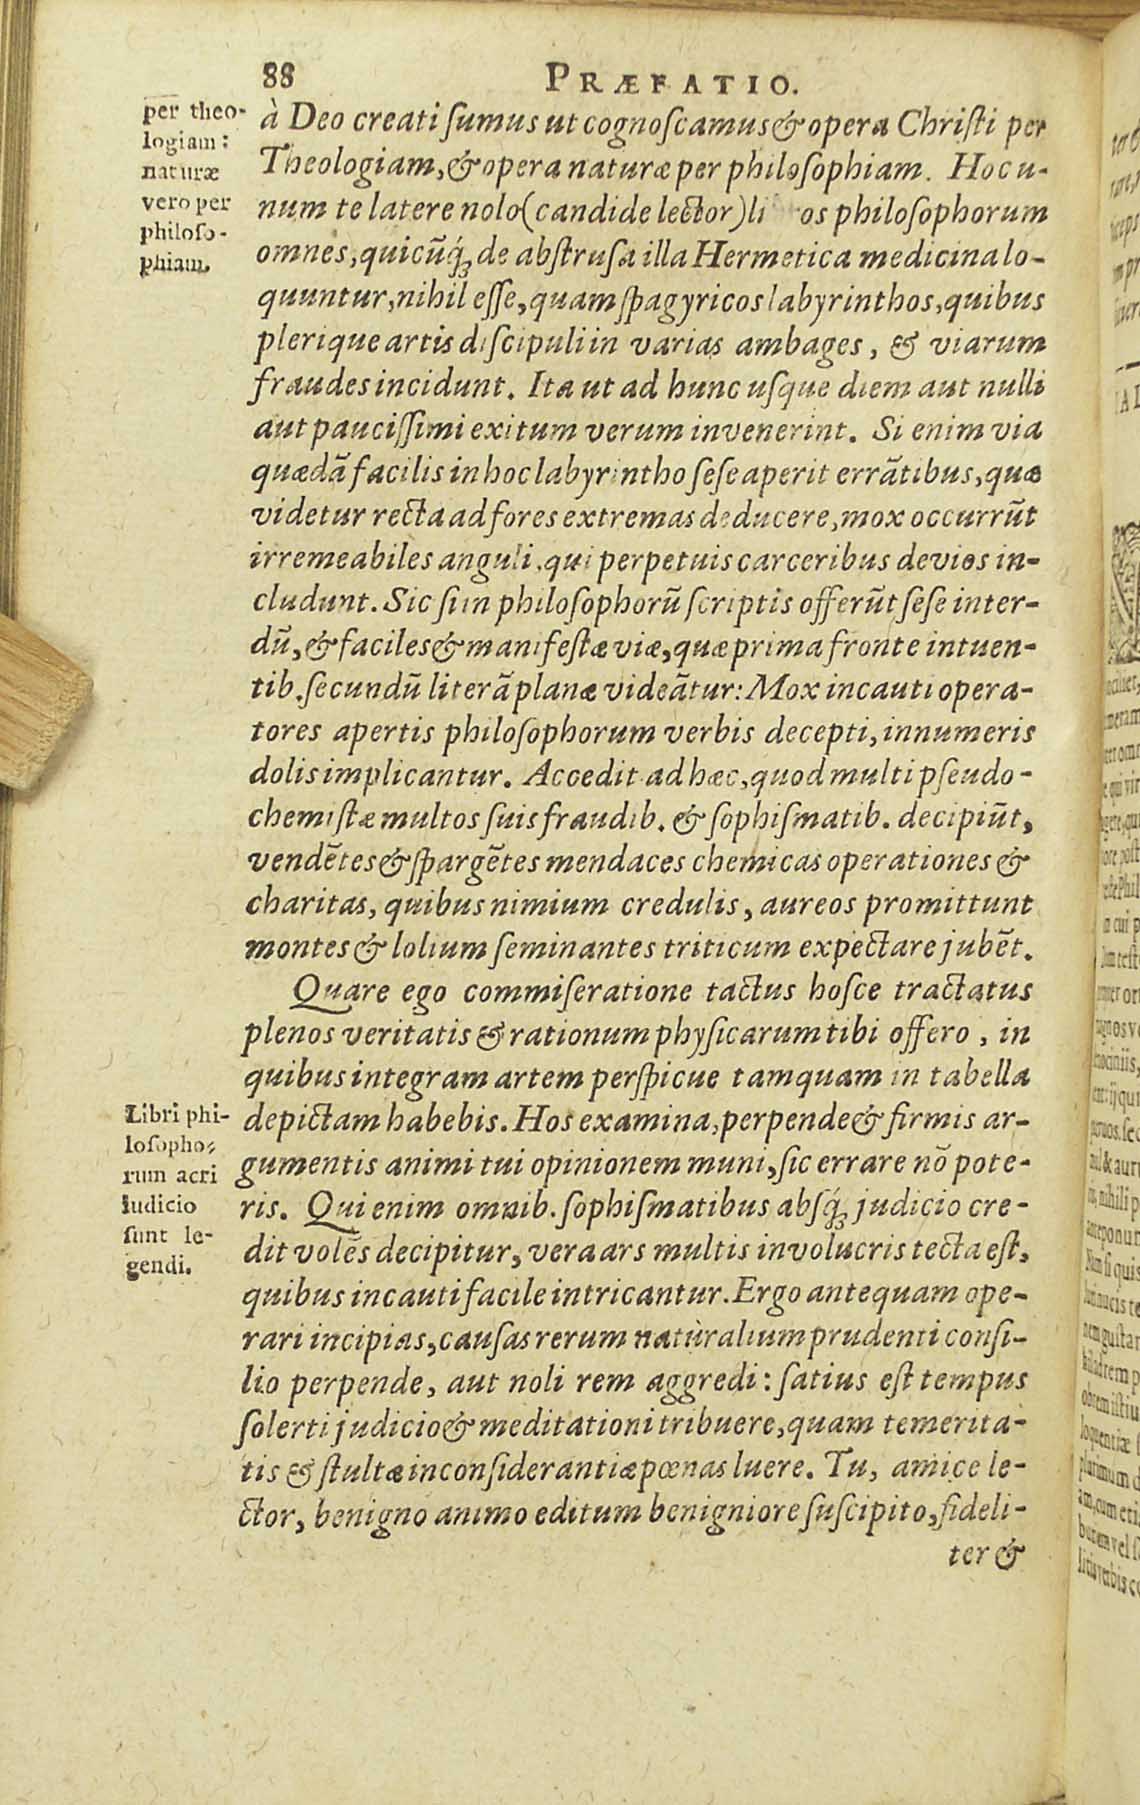 88 PRÆFATIO.
per theo-
logiam:
naturæ
vero per
philoso-
phiam.
à Deo creati sumus ut cognoscamus & opera Christi per
Theologiam, & opera naturæ per philosophiam. Hoc u-
num te latere nolo (candide lector) li os philosophorum
omnes, quicūq́; de abstrusa illa Hermetica medicina lo-
quuntur, nihil esse, quam spagyricos labyrinthos, quibus
plerique artis discipuli in varias ambages, & viarum
fraudes incidunt. Ita ut ad hunc usque diem aut nulli
aut paucissimi exitum verum invenerint. Si enim via
quædā facilis in hoc labyrintho sese aperit errātibus, quæ
videtur recta ad fores extremas deducere, mox occurrūt
irremeabiles anguli, qui perpetuis carceribus devios in-
cludunt. Sic si in philosophorū scriptis offerūt sese inter-
dū, & faciles & manifestæ viæ, quæ prima fronte intuen-
tib. secundū literā planæ videātur: Mox incauti opera-
tores apertis philosophorum verbis decepti, innumeris
dolis implicantur. Accedit ad hæc, quod multi pseudo-
chemistæ multos suis fraudib. & sophismatib. decipiūt,
vendētes & spargētes mendaces chemicas operationes &
charitas, quibus nimium credulis, aureos promittunt
montes & lolium seminantes triticum expectare jubēt.
Quare ego commiseratione tactus hosce tractatus
plenos veritatis & rationum physicarum tibi offero, in
quibus integram artem perspicue tamquam in tabella
depictam habebis. Hos examina, perpende & firmis ar-
gumentis animi tui opinionem muni, sic errare nō pote-
ris. Qui enim omnib. sophismatibus absq́; judicio cre-
dit volēs decipitur, vera ars multis involucris tecta est,
quibus incauti facile intricantur. Ergo antequam ope-
rari incipias, causas rerum naturalium prudenti consi-
lio perpende, aut noli rem aggredi: satius est tempus
solerti judicio & meditationi tribuere, quam temerita-
tis & stultæ inconsiderantiæ pœnas luere. Tu, amice le-
ctor, benigno animo editum benigniore suscipito, fideli-
ter &
Libri phi-
losopho-
rum acri
Iudicio
sunt le-
gendi.